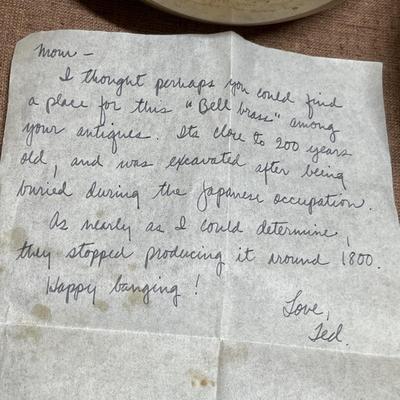 Mom –
I thought perhaps you could find
a place for this "Bell brass" among
your antiques. Its close to 200 years
old, and was excavated after being
buried during the Japanese occupation.
As nearly as I could determine,
they stopped producing it around 1800.
Happy banging!
Love,
Ted.